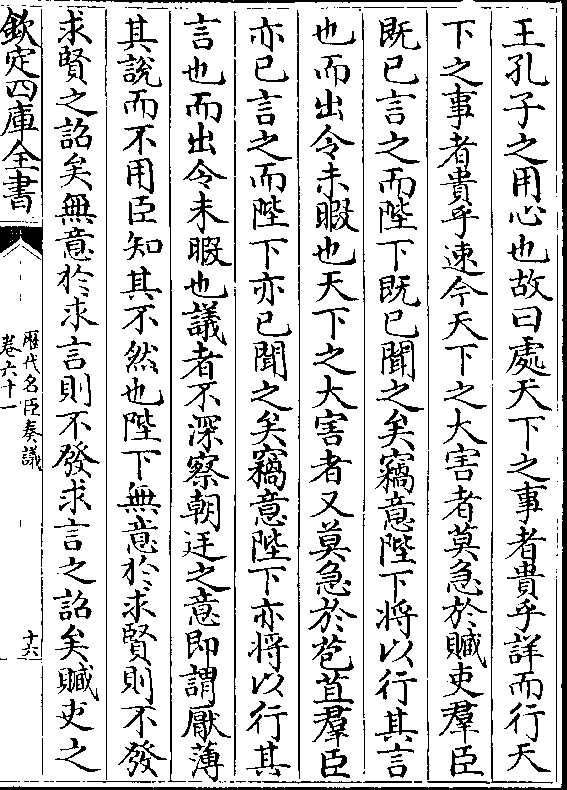 王孔子之用心也故曰處天下之事者貴乎詳而行天
下之事者貴乎速今天下之大害者莫急於贓吏羣臣
既已言之而陛下既已聞之矣竊意陛下將以行其言
也而出令未暇也天下之大害者又莫急於苞苴羣臣
亦已言之而陛下亦已聞之矣竊意陛下亦將以行其
言也而出令未暇也議者不深察朝廷之意即謂厭薄
其說而不用臣知其不然也陛下無意於求賢則不發
求賢之詔矣無意於求言則不發求言之詔矣贓吏之
欽定四庫全書
歷代名臣奏議
卷六十一
十六